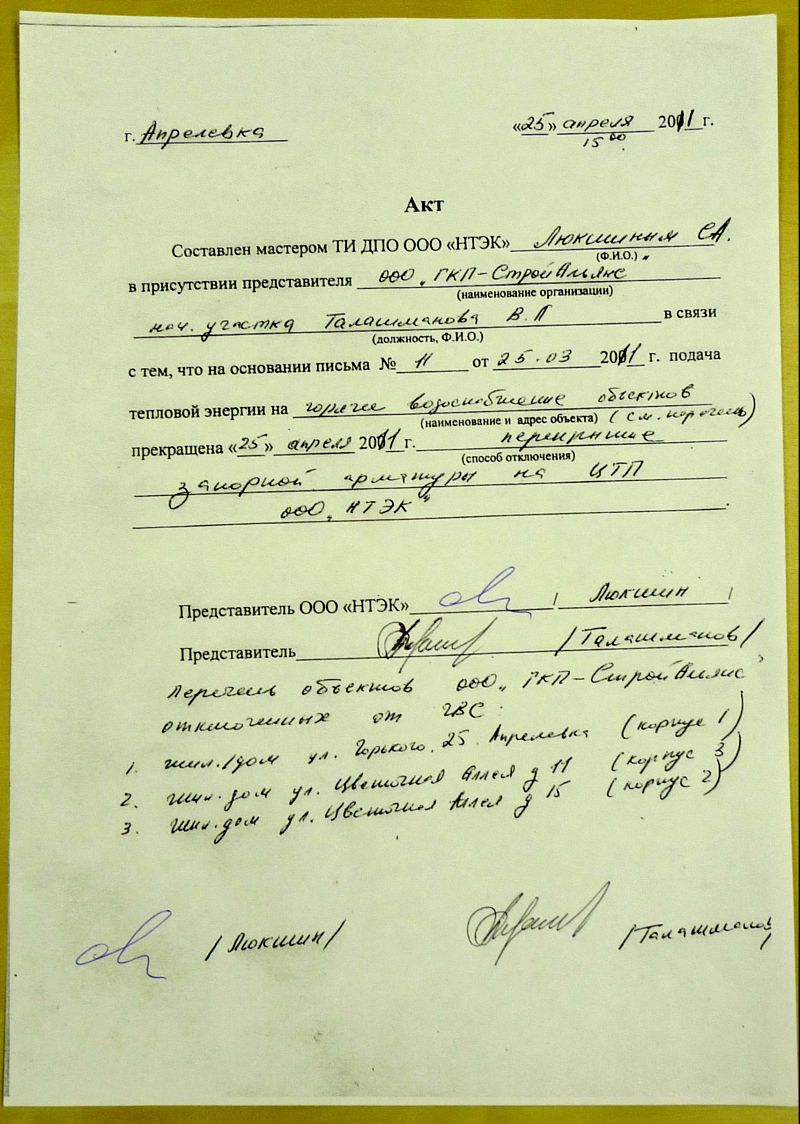 г. Апрелевка «25» апреля 2011 г.
15 00
Акт
Составлен мастером ТИ ДПО ООО «НТЭК» Люкшиным С.А.
(Ф.И.О.)
в присутствии представителя ООО „ГКП-СтройАльянс
(наименование организации)
нач. участка Талашманова В.П в связи
(должность, Ф.И.О.)
с тем, что на основании письма № 11 от 25.03 2011 г. подача
тепловой энергии на горячее водоснабжение объектов
(наименование и адрес объекта) (см. перечень)
прекращена «25» апреля 2011 г. перекрытие
(способ отключения)
запорной арматуры на ЦТП
ООО „НТЭК"
Представитель ООО «НТЭК» / Люкшин /
Представитель /Талашманов/
Перечень объектов ООО „ГКП-СтройАльянс"
отключенных от ГВС
1. жил./дом ул. Горького, 25 Апрелевка (корпус 1)
2. жил. дом ул. Цветочная Аллея д 11 (корпус 3)
3. жил. дом ул. Цветочная Аллея д 15 (корпус 2)
/Люкшин/ /Талашманов/